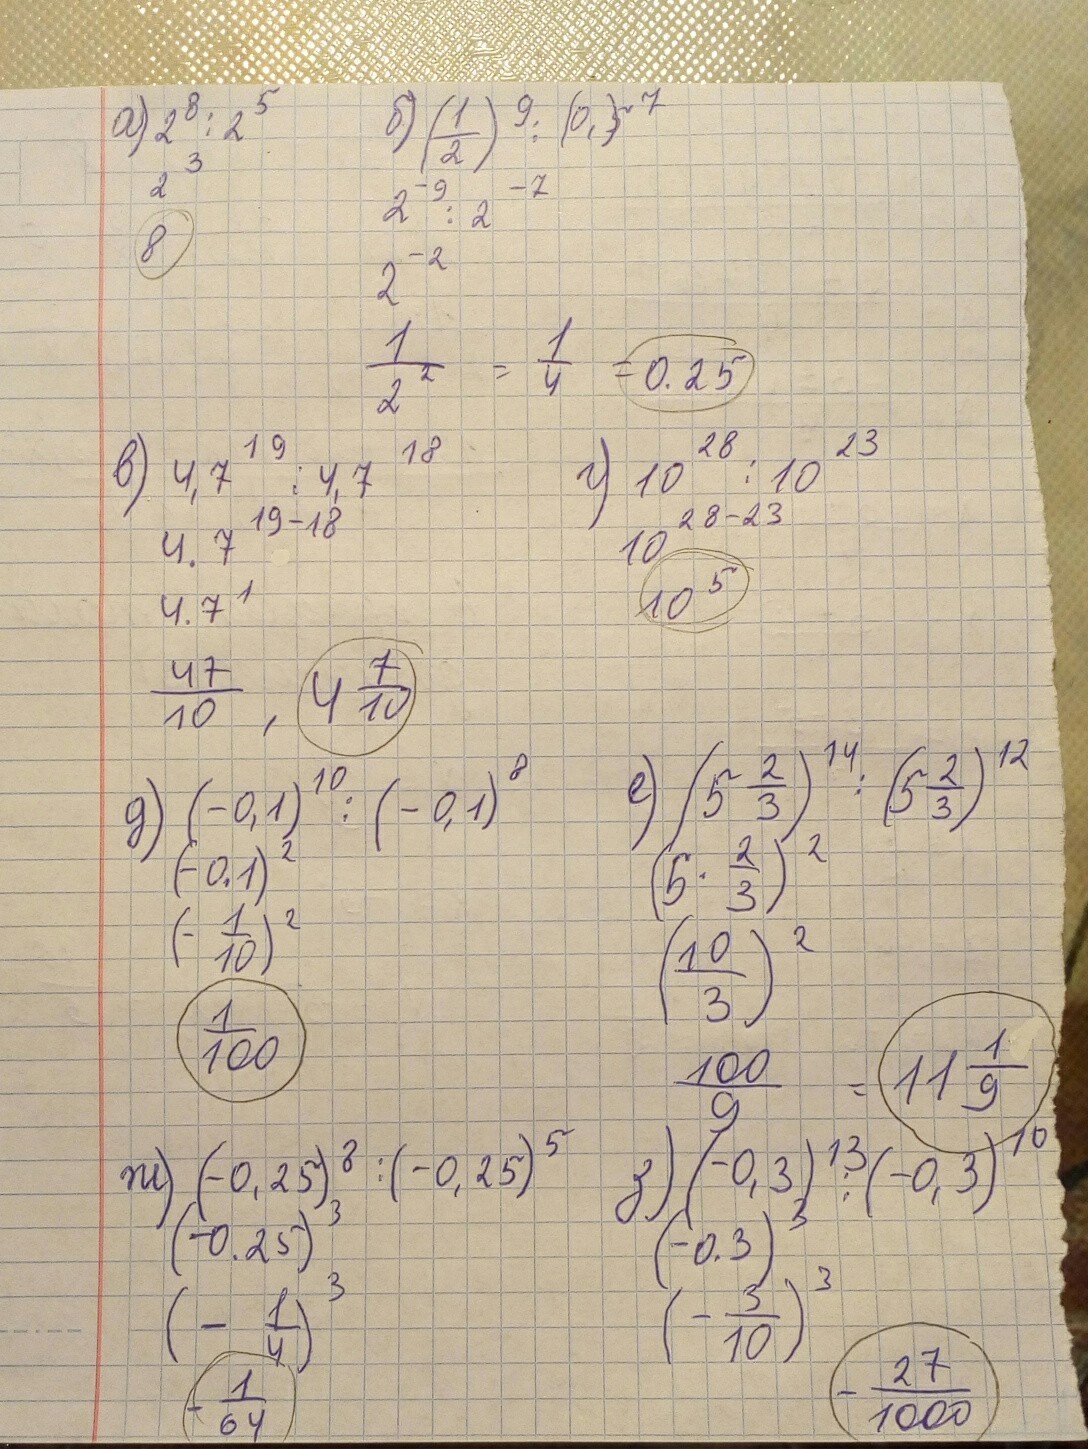 а) 2^8 : 2^5
2^3
8
б) (1/2)^9 : (0,5)^7
2^-9 : 2^-7
2^-2
1/2^2 = 1/4 = 0.25
в) 4,7^19 : 4,7^18
4.7^19-18
4.7^1
47/10 , 4 7/10
г) 10^28 : 10^23
10^28-23
10^5
д) (-0,1)^10 : (-0,1)^8
(-0.1)^2
(-1/10)^2
1/100
е) (5 2/3)^14 : (5 2/3)^12
(5 · 2/3)^2
(10/3)^2
100/9 = 11 1/9
ж) (-0,25)^8 : (-0,25)^5
(-0.25)^3
(- 1/4)^3
- 1/64
з) (-0,3)^13 : (-0,3)^10
(-0.3)^3
(- 3/10)^3
- 27/1000